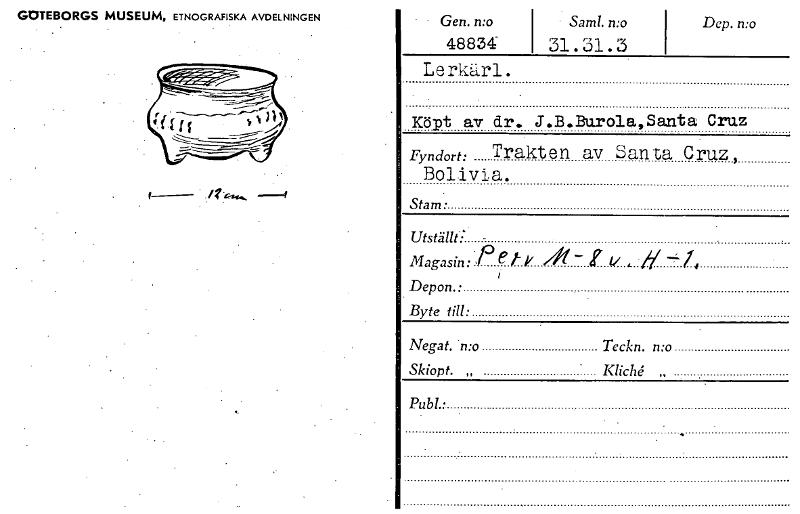 GÖTEBORGS MUSEUM, ETNOGRAFISKA AVDELNINGEN
12 cm
Gen. n:o Saml. n:o Dep. n:o
48834 31.31.3
Lerkärl.
Köpt av dr. J.B.Burola, Santa Cruz
Fyndort: Trakten av Santa Cruz,
Bolivia.
Stam:
Utställt:
Magasin: Perv M-8 v. H-1.
Depon.:
Byte till:
Negat. n:o Teckn. n:o
Skiopt. „ Kliché „
Publ.: